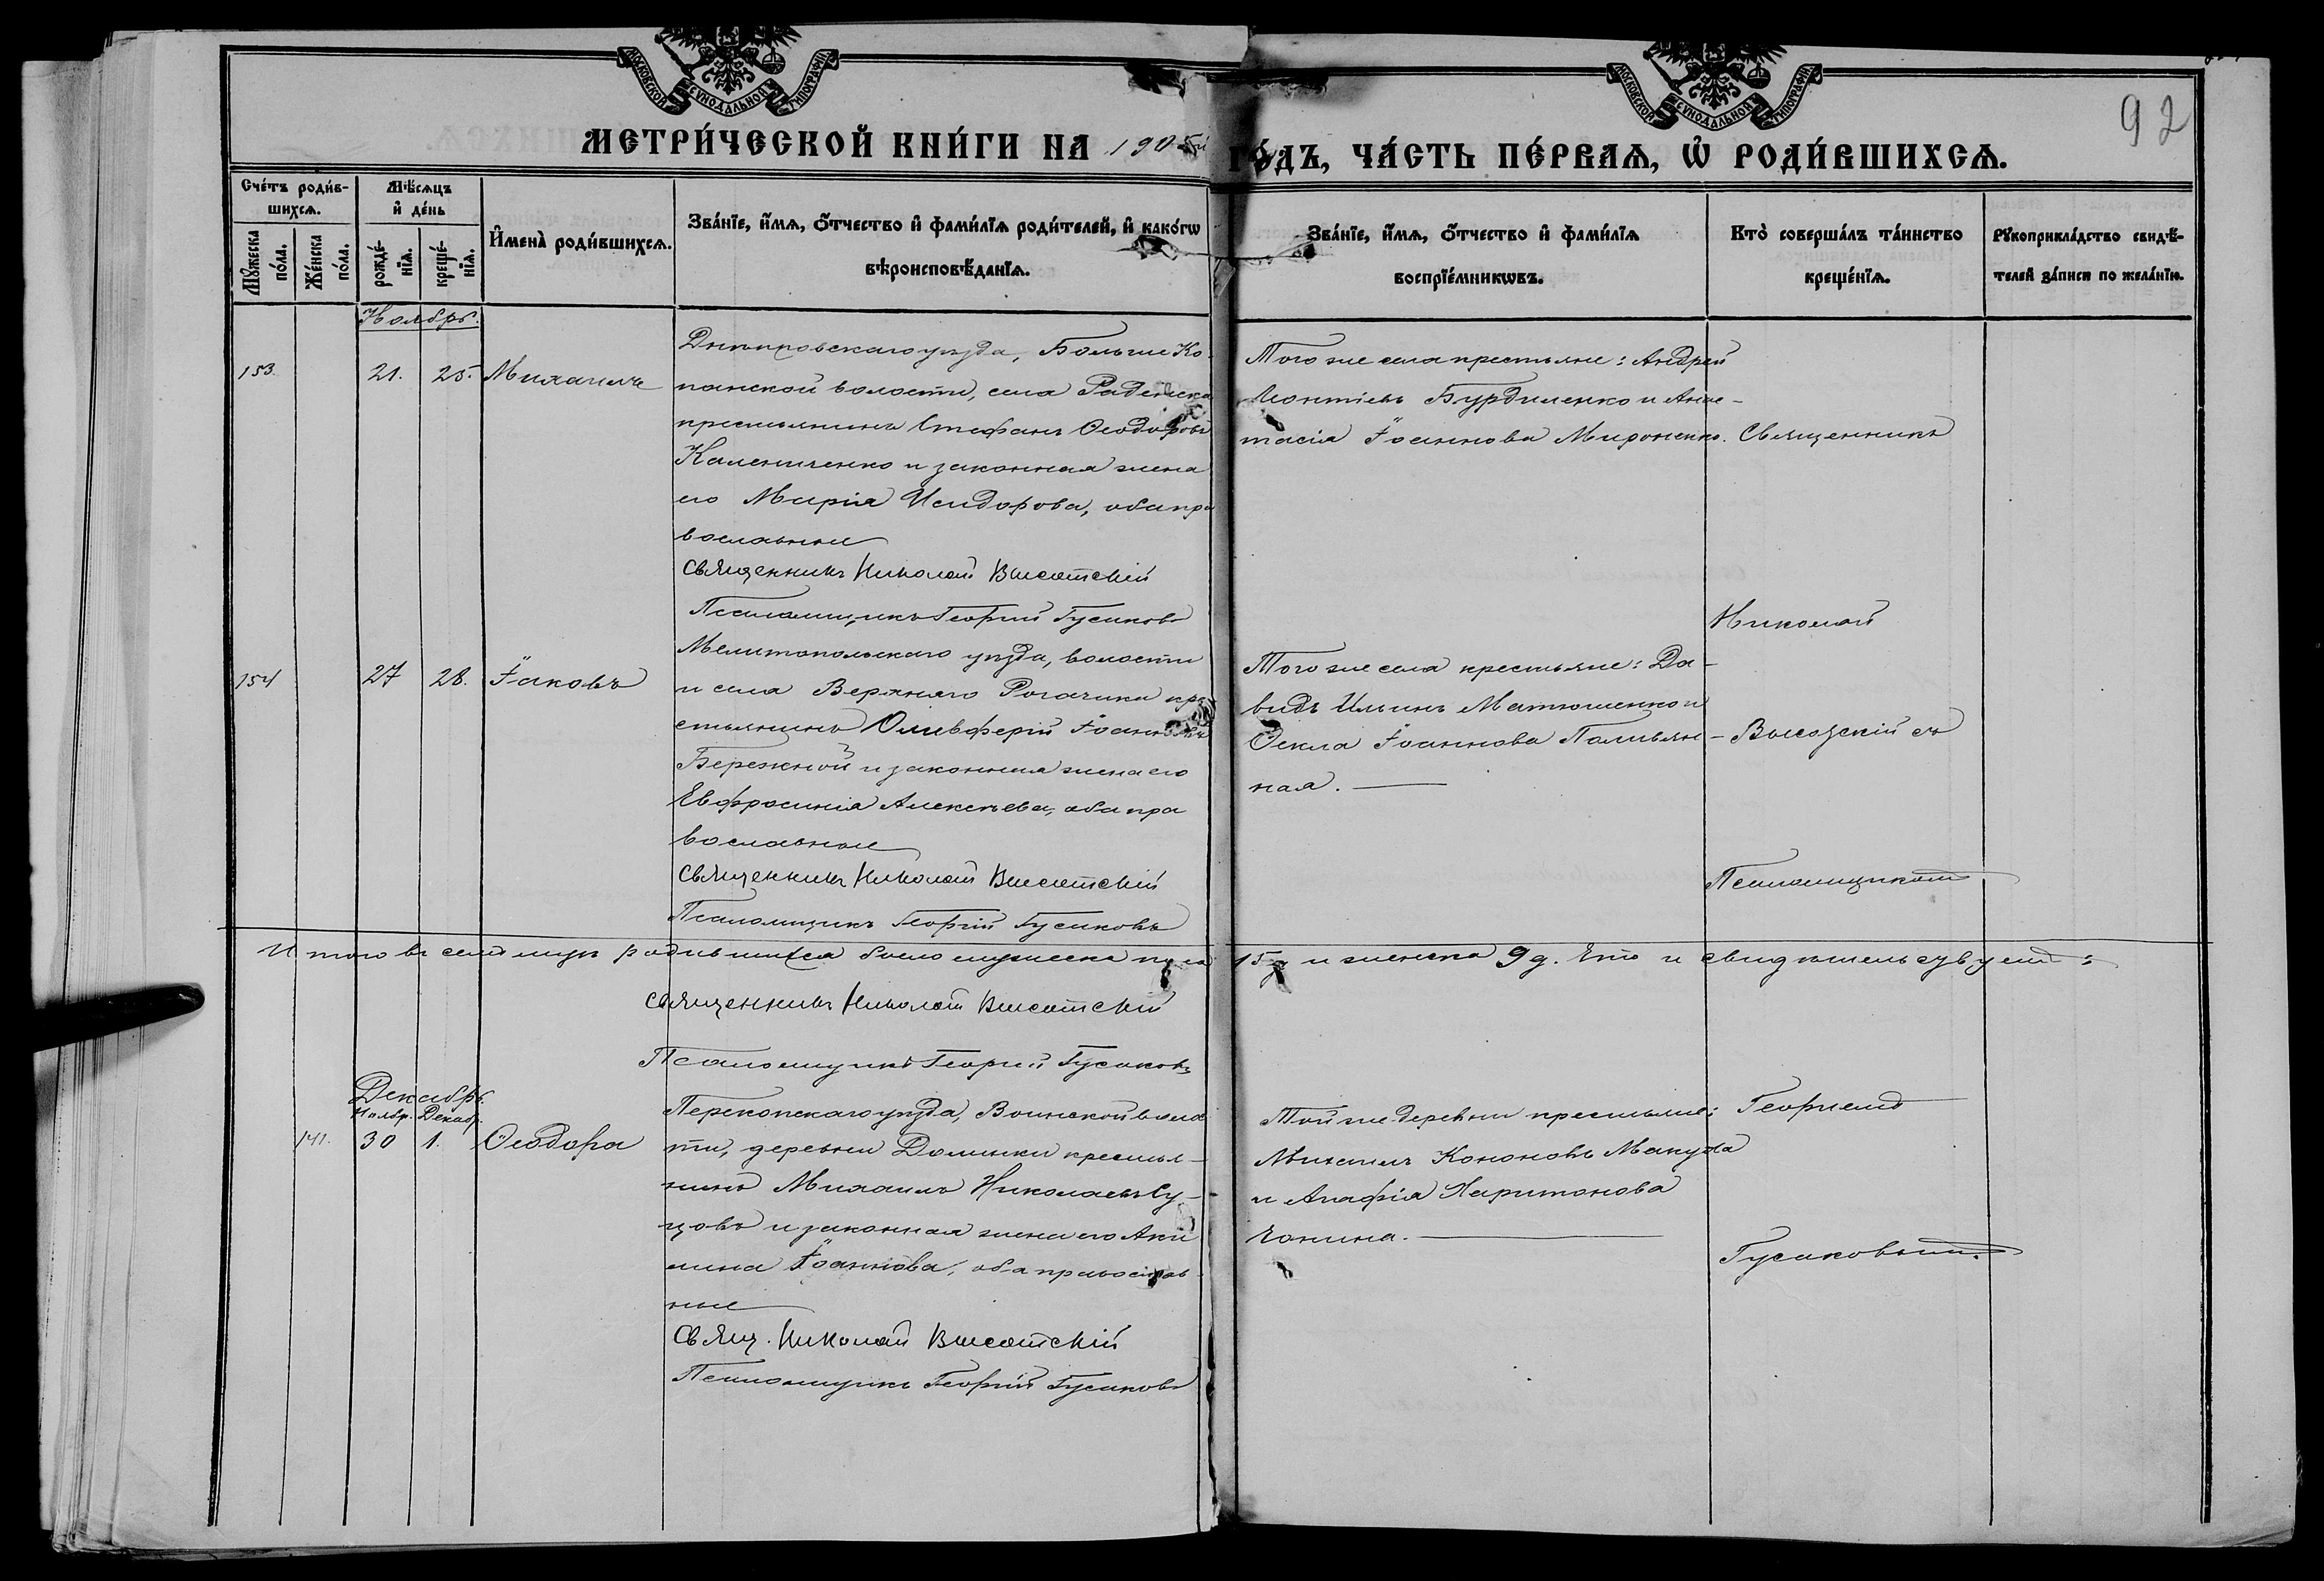 МОСКОВСКОЙ СѴНОДАЛЬНОЙ ТИПОГРАФІИ
МОСКОВСКОЙ СѴНОДАЛЬНОЙ ТИПОГРАФІИ
92
МЕТРИ́ЧЕСКОЙ КНИ́ГИ НА 1905й ГО́ДЪ, ЧА́СТЬ ПЕ́РВАЯ, Ѡ РОДИ́ВШИХСЯ.
Сче́тъ роди́в-
шихся.
Мѣ́сяцъ
и де́нь
Му́жеска
по́ла.
Же́нска
по́ла.
рожде́-
нїя.
креще́-
нїя.
Имена̀ роди́вшихся.
Зва́нїе, и́мя, о́тчество и фами́лїя роди́телей, и како́гѡ
вѣроисповѣ́данїя.
Зва́нїе, и́мя, о́тчество и фами́лїя
воспрїе́мникѡвъ.
Кто̀ соверша́лъ та́инство
креще́нїя.
Рꙋкоприкла́дство свидѣ́-
телей за́писи по жела́нїю.
Ноябрь.
153.
21.
25.
Михаилъ
Днѣпровскаго уѣзда, Больше Ко-
панской волости, села Раденска
крестьянинъ Стефанъ Ѳеодоровъ
Калениченко и законная жена
его Марія Исидорова, оба пра
вославные
Священникъ Николай Высотскій
Псаломщикъ Георгій Гусаковъ
Того же села крестьяне: Андрей
Леонтіевъ Бурдиленко и Анас-
тасія Іоаннова Мироненко.
Священникъ
Николай
154
27
28.
Іаковъ
Мелитопольскаго уѣзда, волости
и села Верхняго Рогачика кре
стьянинъ Елевферій Іоанновъ
Бережной и законная жена его
Евфросинія Алексѣева, оба пра
вославные
Священникъ Николай Высотскій
Псаломщикъ Георгій Гусаковъ
Того же села крестьяне: Да-
видъ Ильинъ Матюшенко и
Ѳекла Іоаннова Поливян-
ная.
Высоцкій съ
Псаломщикомъ
Итого въ семъ мѣс родившихся было мужеска пола 15 д и женска 9 д. Что и свидѣтельствуемъ:
Священникъ Николай Высотскій
Псаломщикъ Георгій Гусаковъ
Декабрь.
Ноябр. Декабр.
141.
30
1.
Ѳеодора
Перекопскаго уѣзда, Воинской волос
ти, деревни Долинки крестья-
нинъ Михаилъ Николаевъ Су-
цовъ и законная жена его Аки
лина Іоаннова, оба православ
ные
Свящ. Николай Высотскій
Псаломщикъ Георгій Гусаковъ
Той же деревни крестьяне:
Михаилъ Кононовъ Макуха
и Агафія Харитонова
Чонина.
Георгіемъ
Гусаковымъ.